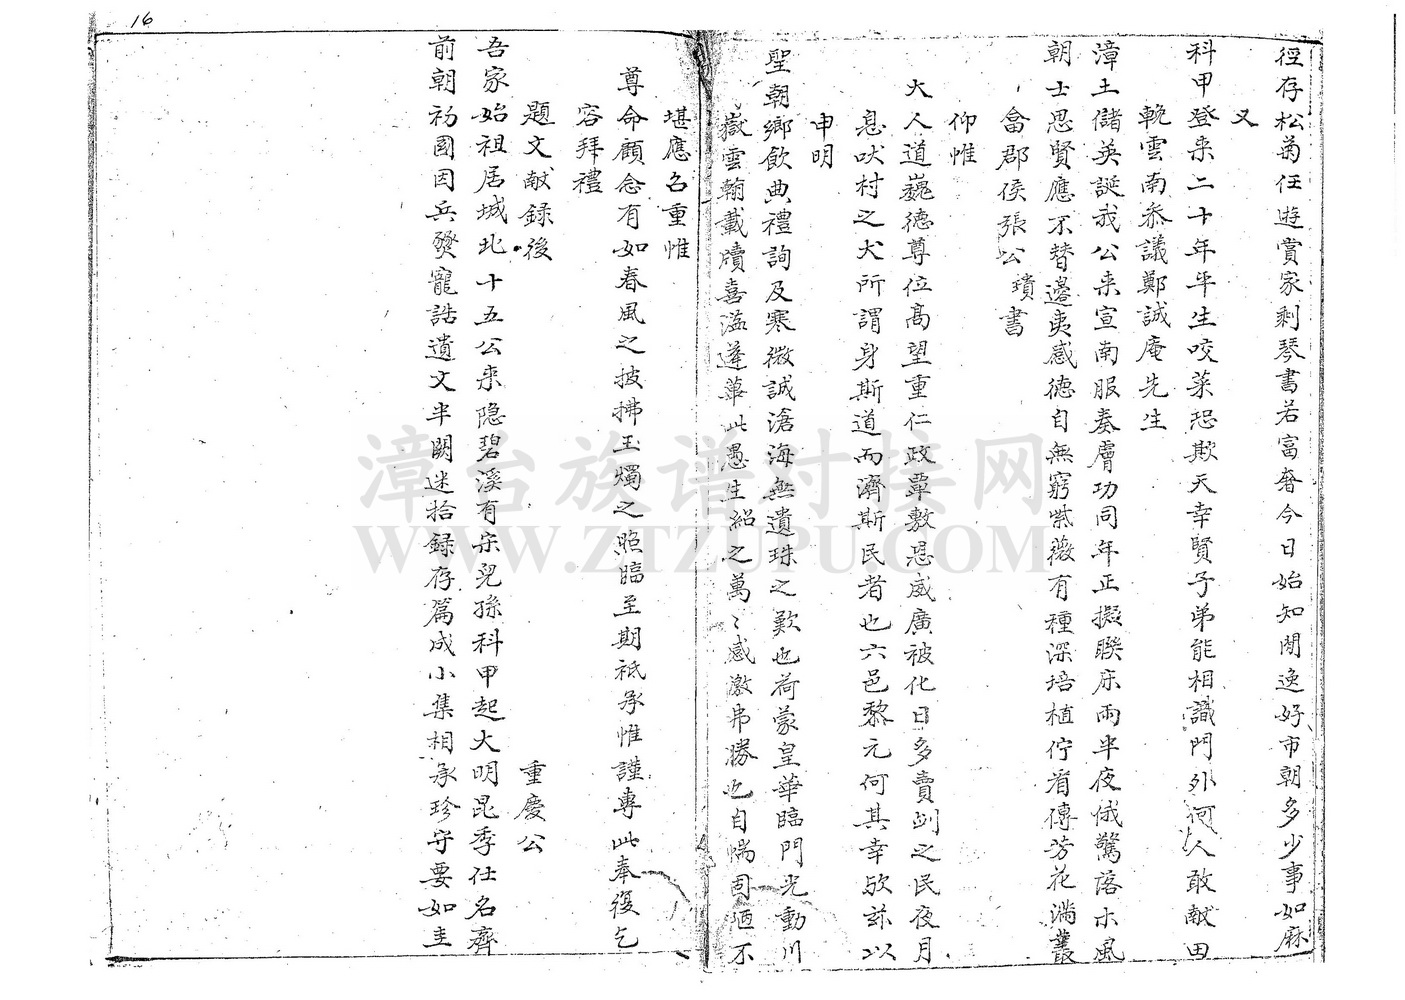 16
徑存松菊任遊賞家剩琴書若富奢今日始知閒逸好市朝多少事如麻
又
科甲登来二十年平生咬菜恐欺天幸賢子弟能相識門外何人敢献田
輓雲南叅議鄭誠庵先生
漳土儲英誕我公来宣南服奏膚功同年正擬聯床雨半夜俄驚落木風
朝士思賢應不替邉夷感德自無窮紫薇有種深培植佇看傳芳花滿叢
畲郡侯張公璝書
仰惟
大人道巍德尊位高望重仁政覃敷恩威廣被化日多賣刬之民夜月
息吠村之犬所謂身斯道而濟斯民者也六邑黎元何其幸歟兹以
申明
聖朝鄉飲典禮詢及寒微誠滄海無遺珠之歎也荷蒙皇華臨門光動川
嶽雲翰載牘喜溢蓬蓽此愚生紹之萬〻感激弗勝也自惴固陋不
堪應名重惟
尊命顧念有如春風之披拂玉燭之照臨至期祗承惟謹專此奉復乞
容拜禮
題文献録後
重慶公
吾家始祖居城北十五公来隐碧溪有宋兒孫科甲起大明昆季仕名齊
前朝初國因兵燹寵誥遺文半闕迷拾録存篇成小集相承珍守要如圭
漳台族谱对接网
WWW.ZTZUPU.COM